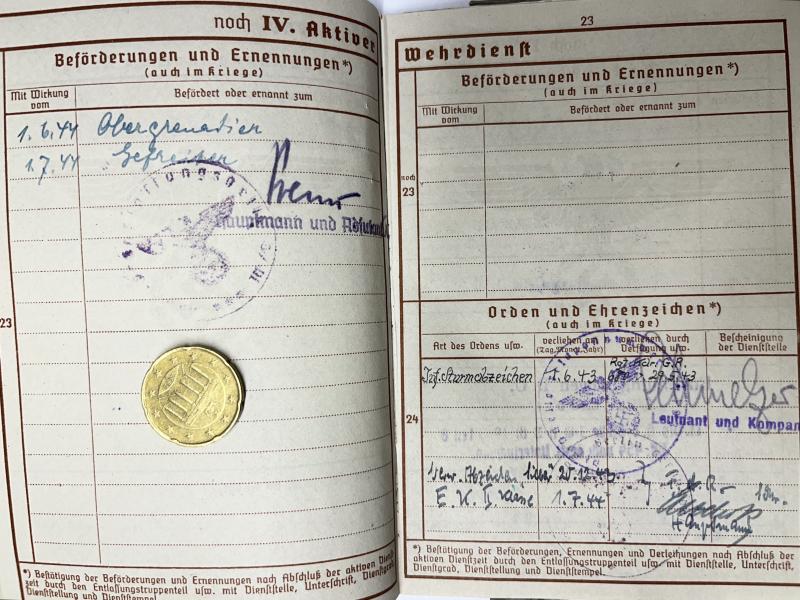 noch IV. Aktiver
Beförderungen und Ernennungen*)
(auch im Kriege)
Mit Wirkung vom
Befördert oder ernannt zum
1.6.44 Obergrenadier
1.7.44 Gefreiter
Hauptmann und
23
*) Bestätigung der Beförderungen und Ernennungen nach Abschluß der aktiven Dienst-
zeit durch den Entlassungstruppenteil usw. mit Dienststelle, Unterschrift, Dienstgrad,
Dienststellung und Dienststempel.
23
Wehrdienst
Beförderungen und Ernennungen*)
(auch im Kriege)
Mit Wirkung vom
Befördert oder ernannt zum
noch
23
Orden und Ehrenzeichen*)
(auch im Kriege)
Art des Ordens usw.
verliehen am
(Tag, Monat, Jahr)
verliehen durch
Verfügung usw.
Bescheinigung
der Dienststelle
Inf. Sturmabzeichen 1.6.43 29.5.43
Leutnant und Kompan
24
Berlin
Verw. Abzeichen, 12.43
E. K. II. Klasse 1.7.44
Hauptmann
*) Bestätigung der Beförderungen, Ernennungen und Verleihungen nach Abschluß der
aktiven Dienstzeit durch den Entlassungstruppenteil usw. mit Dienststelle, Unterschrift,
Dienstgrad, Dienststellung und Dienststempel.